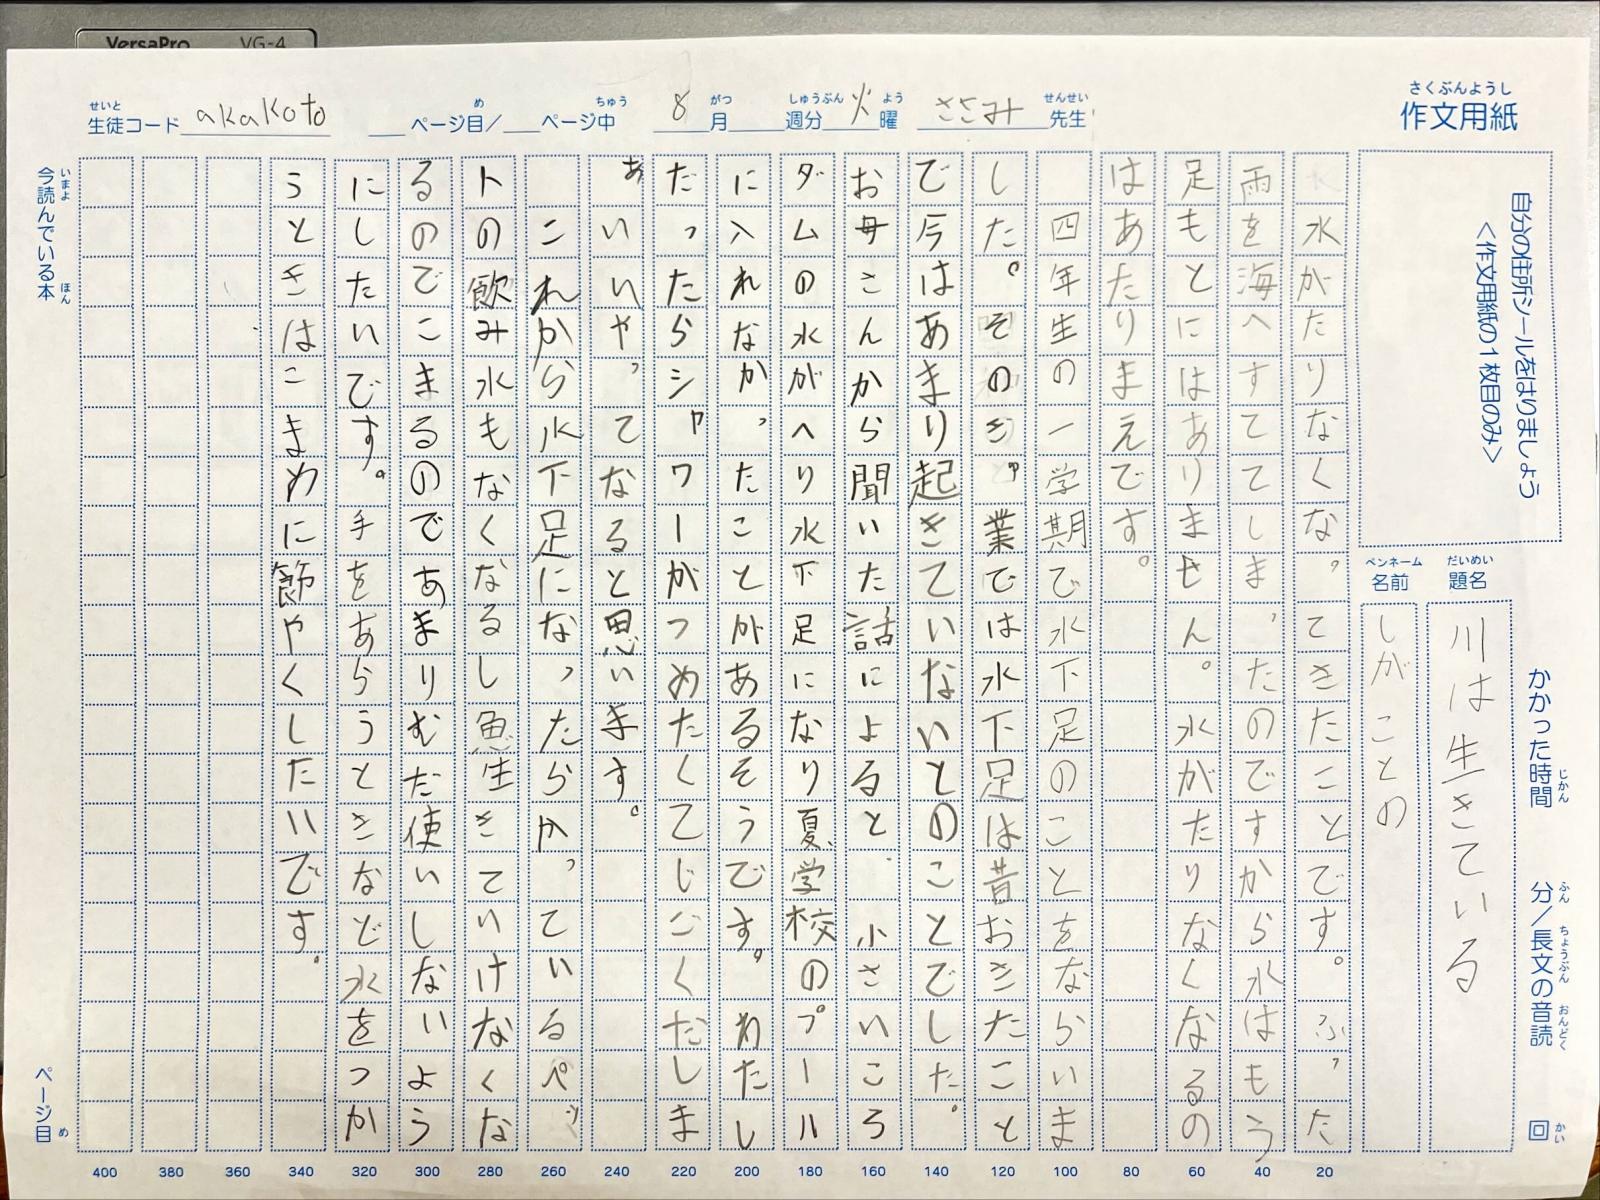 VersaPro VG-4
せいと
生徒コード akakoto
め
ちゅう
ページ目/ ページ中
がつ
8月
しゅうぶん
週分
よう
火曜
せんせい
ささみ先生
さくぶんようし
作文用紙
自分の住所シールをはりましょう
<作文用紙の1枚目のみ>
だいめい
題名
川は生きている
ペンネーム
名前
しがことの
かかった時間
じかん
分/長文の音読
ふん ちょうぶん おんどく
回
かい
水がたりなくなってきたことです。ふった
雨を海へすててしまったのですから水はもう
足もとにはありません。水がたりなくなるの
はあたりまえです。
四年生の一学期で水下足のことをならいま
した。そのじゅ業では水下足は昔おきたこと
で今はあまり起きていないとのことでした。
お母さんから聞いた話によると小さいころ
ダムの水がへり水下足になり夏、学校のプール
に入れなかったことがあるそうです。わたし
だったらシャワーがつめたくてじごくだしま
あいいやってなると思います。
これから水下足になったらかっているペッ
トの飲み水もなくなるし魚生きていけなくな
るのでこまるのであまりむだ使いしないよう
にしたいです。手をあらうときなど水をつか
うときはこまめに節やくしたいです。
20 40 60 80 100 120 140 160 180 200 220 240 260 280 300 320 340 360 380 400
いまよ ほん
今読んでいる本
ページ目
め